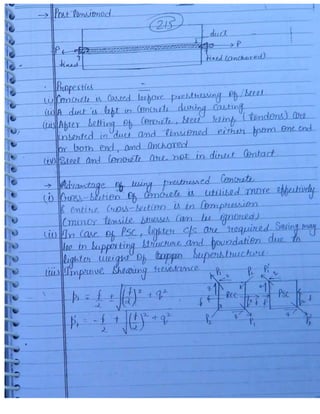 → Post Tensioned
213
duct
P
→ P
fixed
fixed (anchored)
Properties
(i) Concrete is casted before prestressing of steel
(ii) A duct is left in concrete during casting
(iii) After setting of concrete, steel reinf (Tendons) are
inserted in duct and tensioned either from one end
or both end, and anchored
(iv) Steel and concrete are not in direct contact
→ Advantage of using prestressed concrete
(i) Cross-section of concrete is utilised more effectively
& entire cross-section is in compression
(minor tensile stresses can be ignored)
(ii) In case of PSC, lighter c/s are required Saving may
be in supporting structure and foundation due to
lighter weight of superstructure.
(iii) Improve shearing resistance
P1 = f/2 + √(f/2)² + q²
P1' = -f/2 + √(f/2)² + q²
RCC
PSC